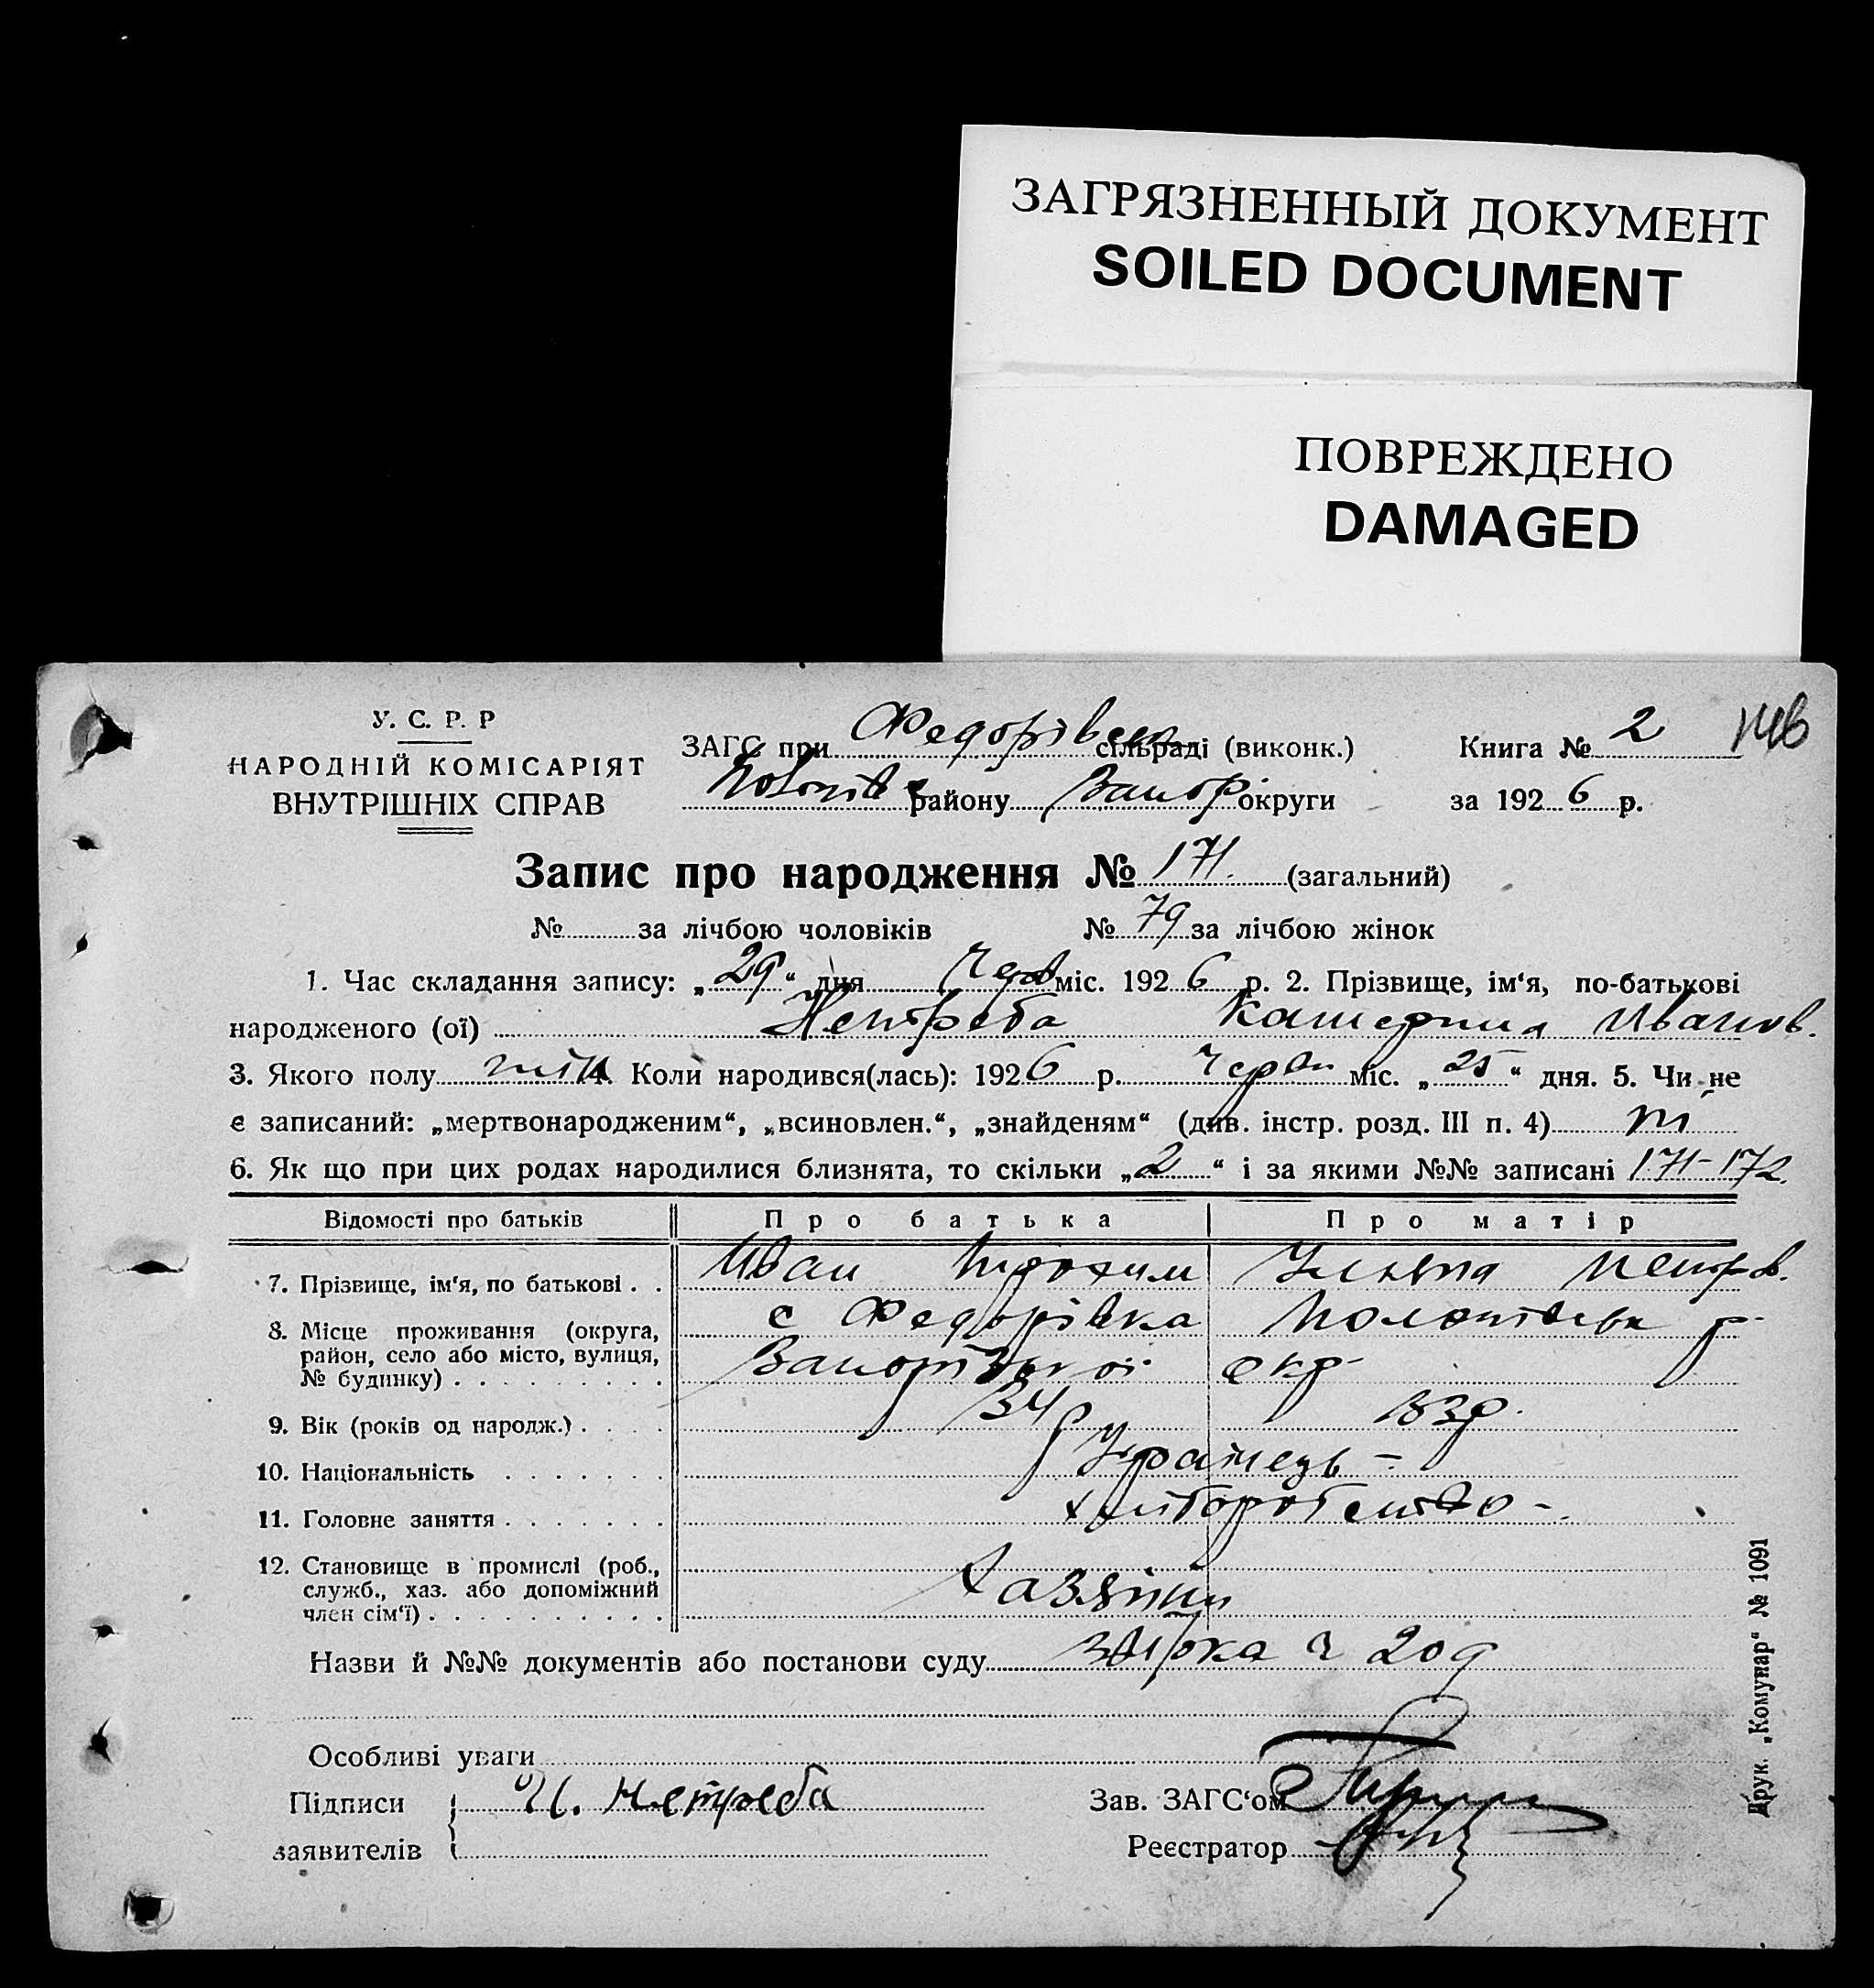 ЗАГРЯЗНЕННЫЙ ДОКУМЕНТ
SOILED DOCUMENT
ПОВРЕЖДЕНО
DAMAGED
У. С. Р. Р
НАРОДНІЙ КОМІСАРІЯТ
ВНУТРІШНІХ СПРАВ
ЗАГС при Федорівськ сільраді (виконк.) Книга № 2
району Запор округи за 1926 р.
Запис про народження № 171. (загальний)
№ за лічбою чоловіків № 79 за лічбою жінок
1. Час складання запису: „29“ дня Черв міс. 1926 р. 2. Прізвище, ім‘я, по-батькові
народженого (ої) Нетреба Катерина Иванов.
3. Якого полу жін 4. Коли народився(лась): 1926 р. Червн міс. „25“ дня. 5. Чи не
є записаний: „мертвонародженим“, „всиновлен.“, „знайденям“ (див. інстр. розд. III п. 4) ні
6. Як що при цих родах народилися близнята, то скільки „2“ і за якими №№ записані 171-172.
Відомості про батьків Про батька Про матір
7. Прізвище, ім‘я, по батькові . . Иван Трохим Ульяна Петров.
8. Місце проживання (округа, район, село або місто, вулиця, № будинку) . . . . . . . . . с Федорівка р-
Запорізької окр-
9. Вік (років од народж.) . . . . 34р 33р.
10. Національність . . . . . . . Украінець -
11. Головне заняття . . . . . . . хліборобство -
12. Становище в промислі (роб., служб., хаз. або допоміжний член сім‘ї) . . . . . . . . . . Хазяіни
Назви й №№ документів або постанови суду 209
Особливі уваги
Підписи И. Нетреба Зав. ЗАГС‘ом
заявителів Реєстратор
Друк. „Комунар“ № 1091